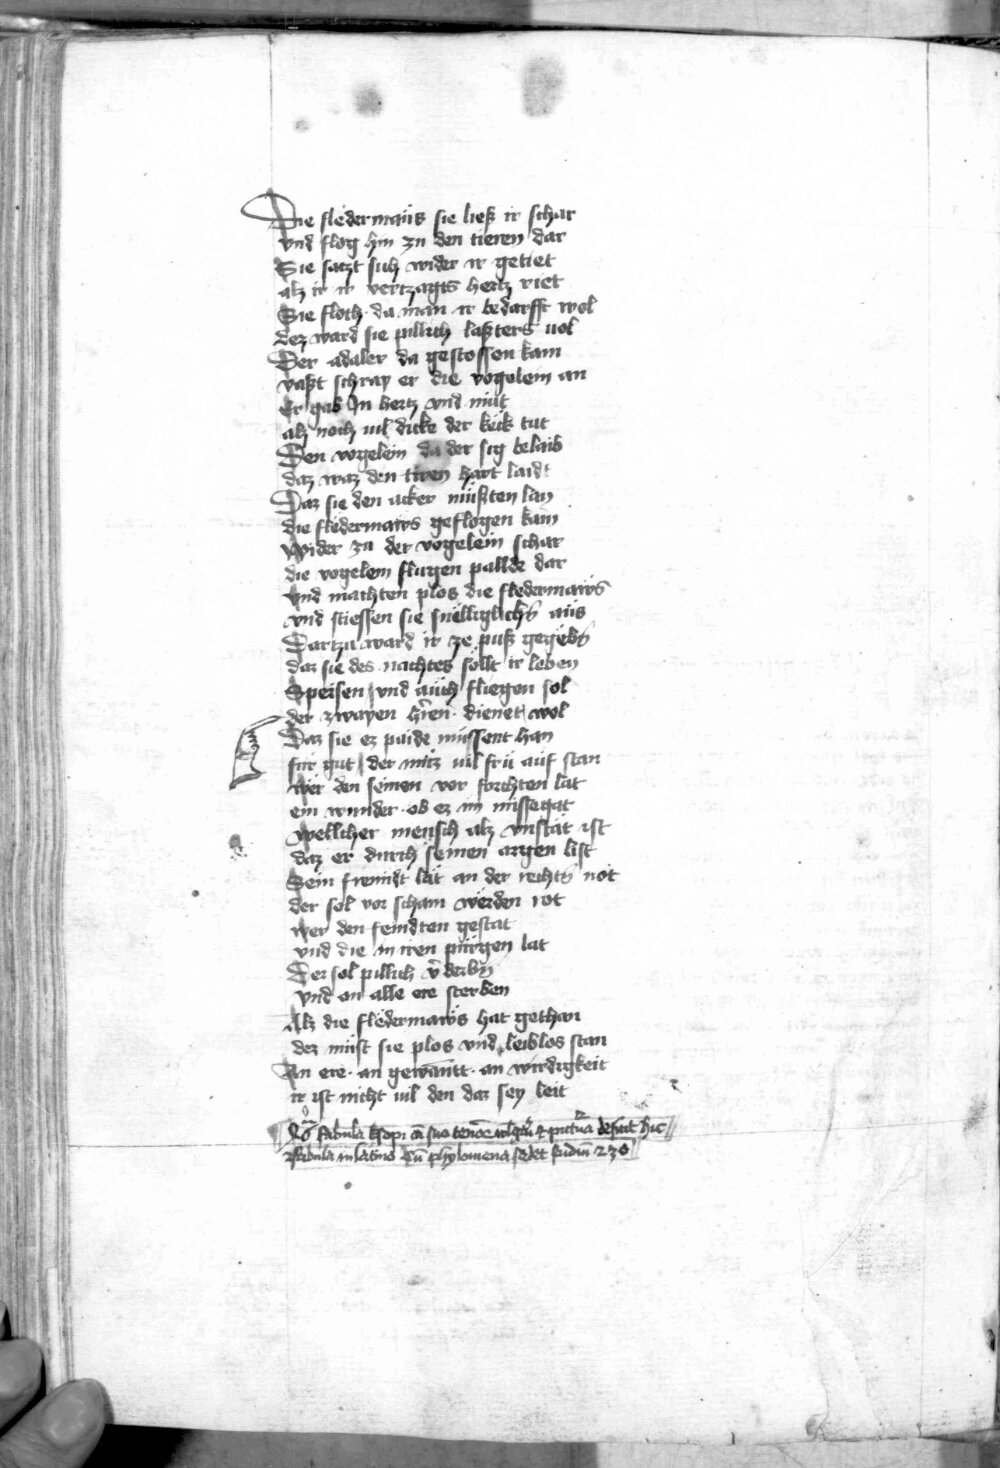 Die fledermaüs sie ließ ir schar
vnd flog hin zu den tieren dar
Sie saczt sich wider ir getiet
alz ir ir verczagts hertz riet
Sie floch da man ir bedarfft wol
dez ward sie pillich laßters uol
Der adaler da gestossen kam
vaßt schray er die vogelein an
Er gab In hertz vnd müt
alz noch uil dicke der keck tut
Den vogelein da der sig belaib
daz waz den tiren hart laidt
Daz sie den acker müßten lan
die fledermaws geflogen kam
Wider zu der vogelein schar
die vogelein flugen pallde dar
vnd machten plos die fledermaws
vnd stiessen sie snelliglichn̄ aüs
Dartzu ward ir ze puß gegebn̄
daz sie des nachtes söllt ir leben
Speisen vnd aüch fliegen sol
der zwayen hr̄en dienet wol
Daz sie ez paide müssent han
für gut der müz uil frü aüf stan
wer den seinen vor forchten lat
ein wunder ob ez im missegat
wellicher mensch alz vnstät ist
daz er durch seinen argen list
Sein freündt lät an der rechtn̄ not
der sol vor scham werden rot
wer den feindten gestat
vnd die in iren pürgen lat
Der sol pillich v̄derbn̄
vnd on alle ere sterben
Alz die fledermaws hat gethan
dez müst sie plos vnd leiblos stan
An ere an gewantt an wirdigkeit
ir ist nicht uil den daz sey leit
fabula Esopi cū suo tenore defuit hic
fabula in latino Cū phylomena sedet 230